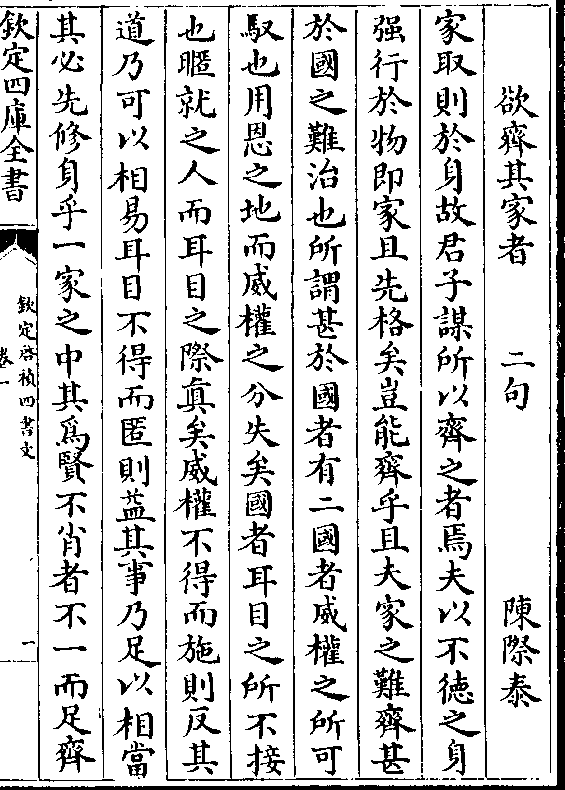 欲齊其家者 二句 陳際泰
家取則於身故君子謀所以齊之者焉夫以不德之身
强行於物即家且先格矣豈能齊乎且夫家之難齊甚
於國之難治也所謂甚於國者有二國者威權之所可
馭也用恩之地而威權之分失矣國者耳目之所不接
也暱就之人而耳目之際真矣威權不得而施則反其
道乃可以相易耳目不得而匿則葢其事乃足以相當
其必先修身乎一家之中其為賢不肖者不一而足齊
欽定四庫全書
欽定啓禎四書文
卷一
一